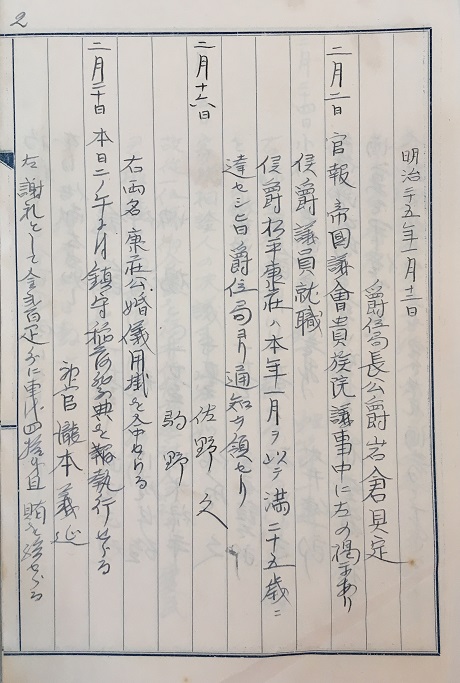 2
明治三十五年一月十三日
爵位局長公爵岩倉具定
二月二日 官報帝國議會貴族院議事中に左の掲示あり
侯爵議員就職
侯爵松平康荘ハ本年一月ヲ以テ満二十五歳ニ
達セシ旨爵位局ヨリ通知ヲ領セリ
二月十六日 佐野久
駒野
右両名康荘公婚儀用掛を命せらる
二月二十日 本日二ノ午ニ付鎮守稲荷祭典を執行せらる
神官瀧本義延
右謝礼として金弐百疋外に車代四拾